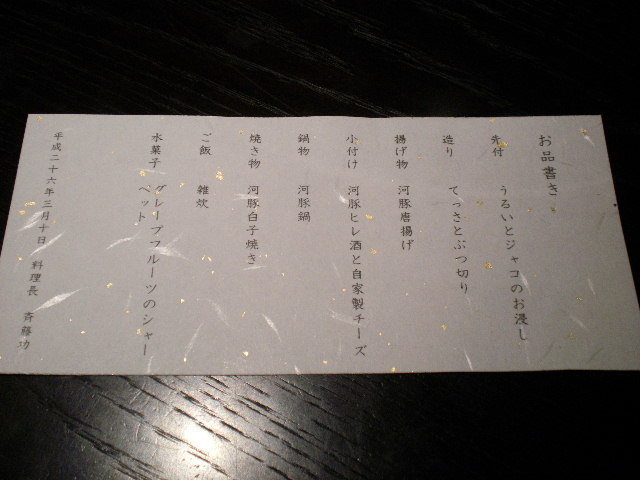 お品書き
先付　うるいとジャコのお浸し
造り　てっさとぶつ切り
揚げ物　河豚唐揚げ
小付け　河豚ヒレ酒と自家製チーズ
鍋物　河豚鍋
焼き物　河豚白子焼き
ご飯　雑炊
水菓子　グレープフルーツのシャー
ベット
平成二十六年三月十日　料理長　斉藤功